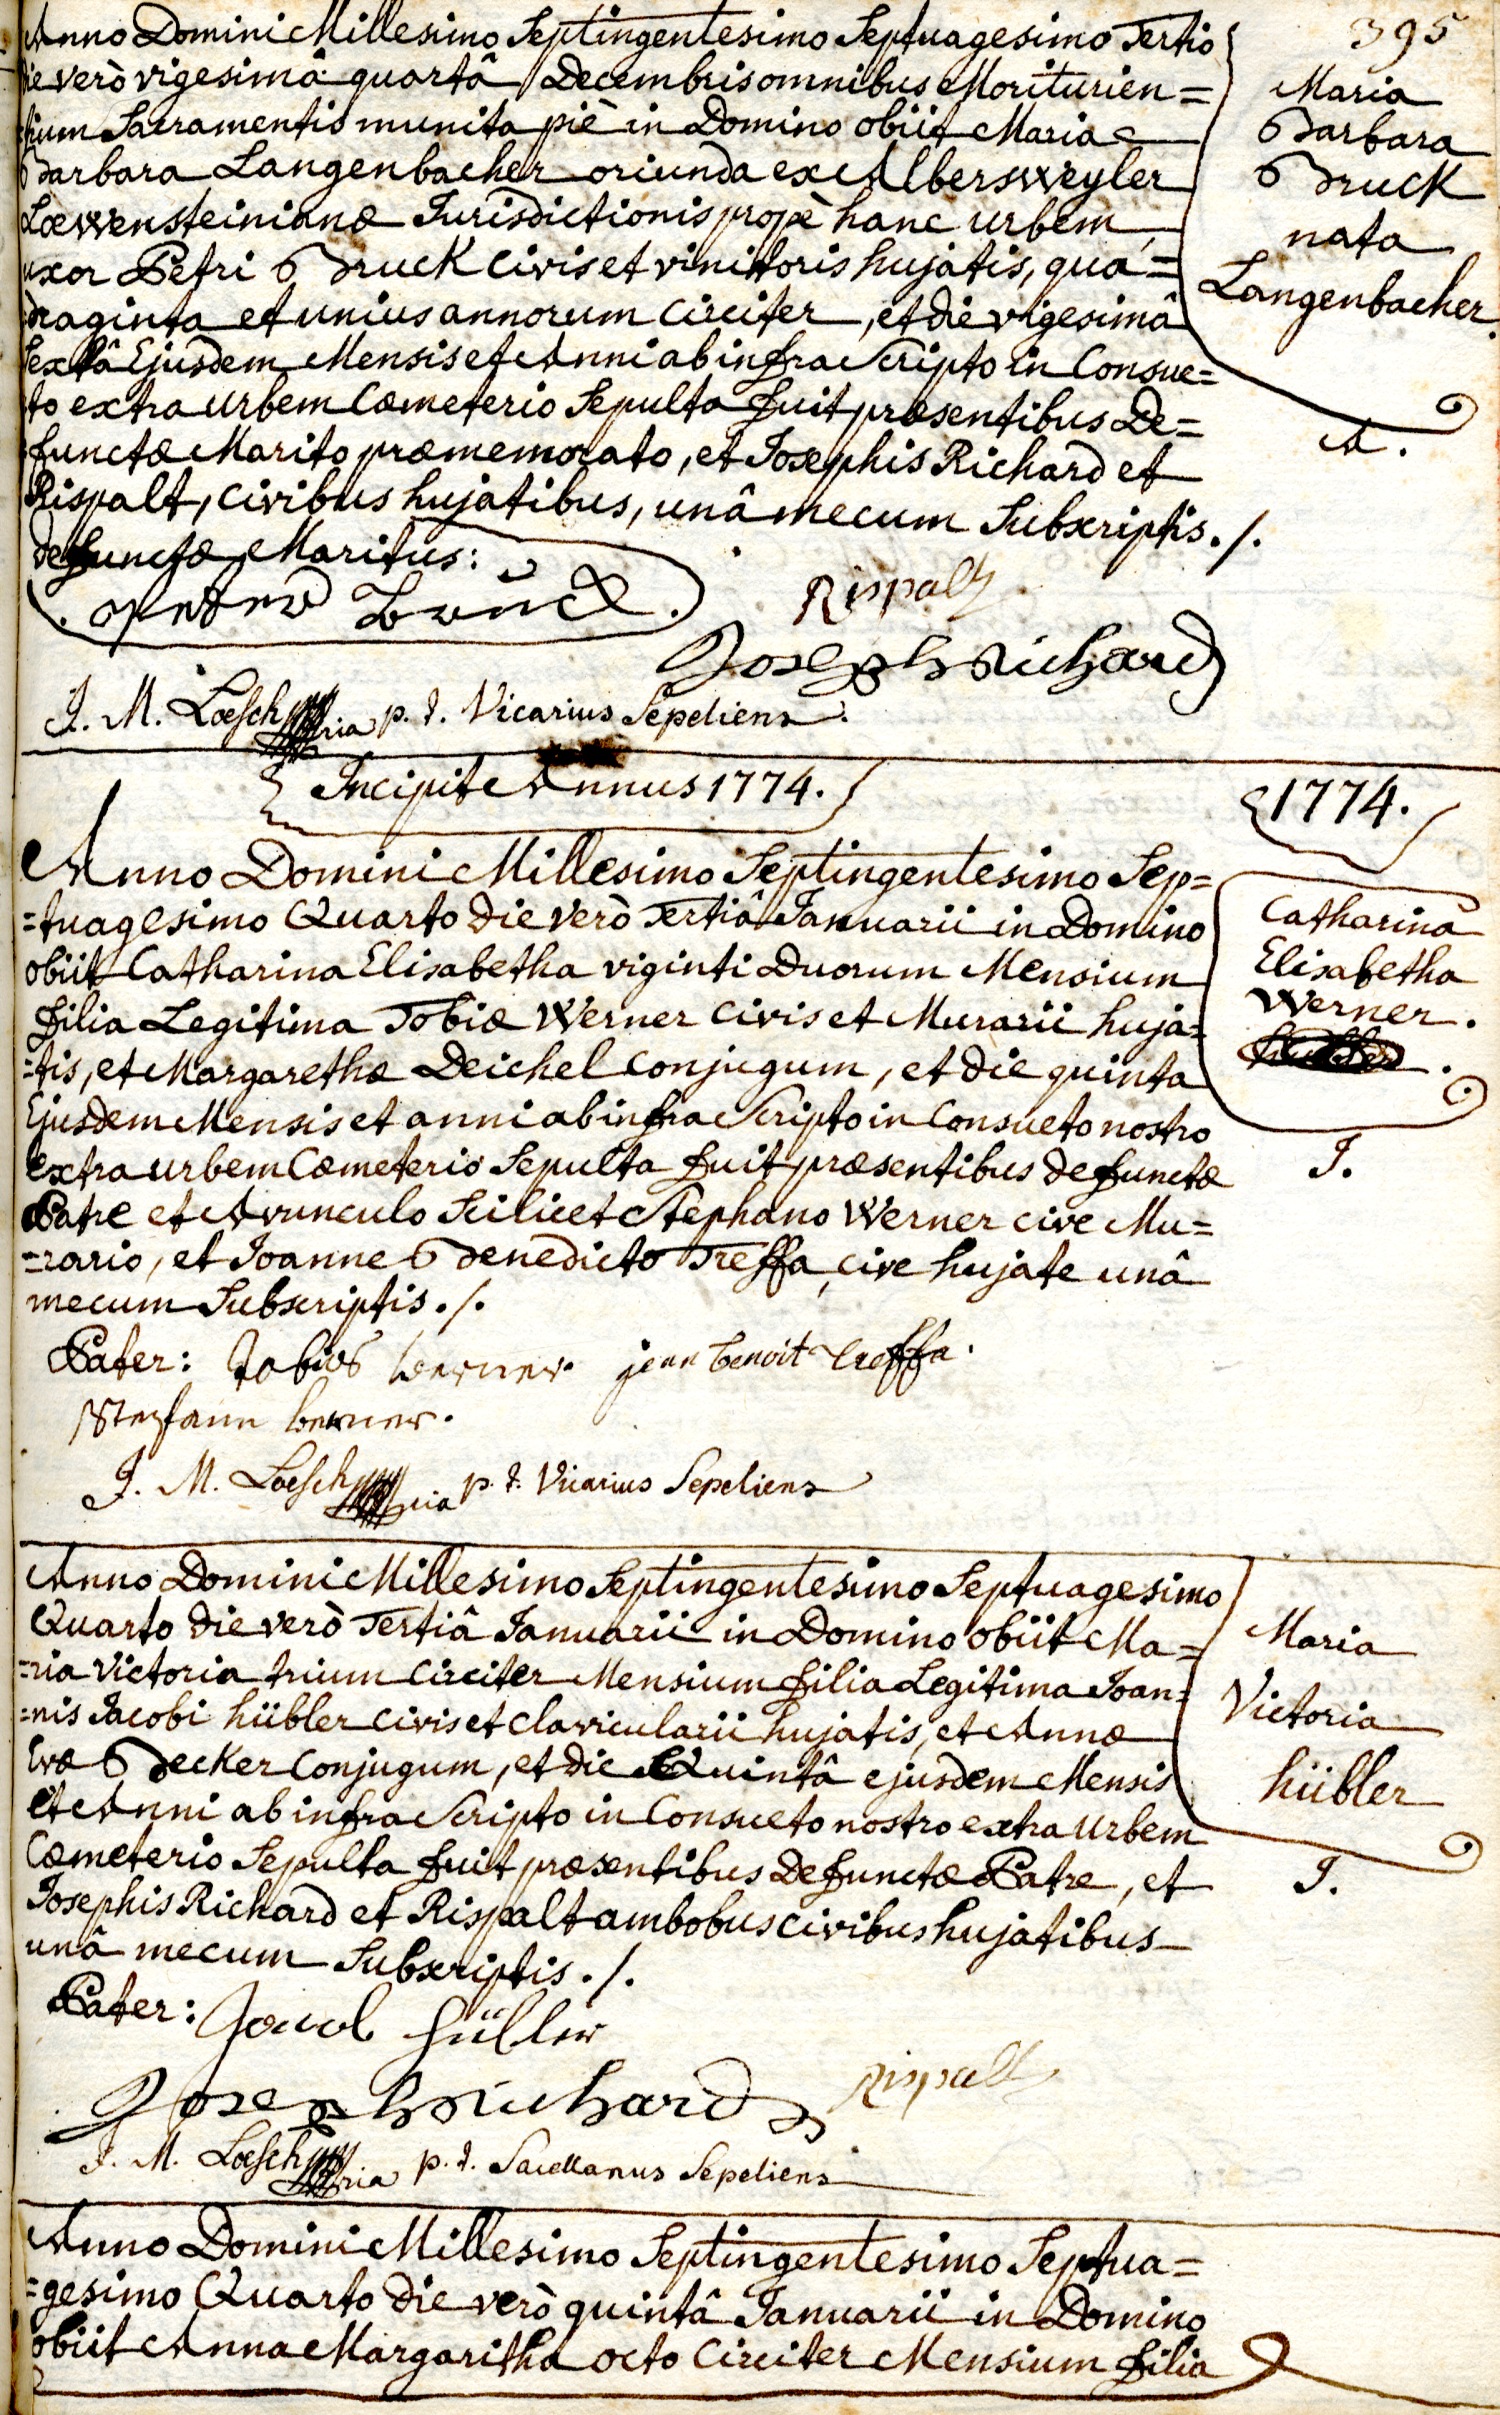 395
Anno Domini Millesimo Septingentesimo Septuagesimo Tertio
die verò vigesimâ quartâ Decembris omnibus Moriturien=
=tium Sacramentis munita piè in Domino obiit Maria
Barbara Langenbacher oriunda ex Albersweyler
Loewensteinianæ Jurisdictionis propè hanc urbem,
uxor Petri Bruck civis et vinitoris hujatis, qua=
=draginta et unius annorum circiter, et die vigesimâ
sextâ Ejusdem Mensis et Anni ab infra Scripto in Consue=
=to extra urbem Cœmeterio Sepulta fuit præsentibus De=
=functæ Marito præmemorato, et Josephis Richard et
Rispalt, civibus hujatibus, unâ mecum Subscriptis ./.
Maria
Barbara
Bruck
nata
Langenbacher.
A.
defunctæ Maritus:
Rispalt
Joseph Richard
J. M. Loesch p. t. Vicarius Sepeliens.
Incipit Annus 1774.
1774.
Anno Domini Millesimo Septingentesimo Sep=
=tuagesimo Quarto die verò Tertiâ Januarii in Domino
obiit Catharina Elisabetha viginti Duorum Mensium
filia Legitima Tobiæ Werner civis et Murarii huja=
=tis, et Margarethæ Deichel conjugum, et die quinta
Ejusdem Mensis et anni ab infra Scripto in Consueto nostro
extra urbem Cœmeterio Sepulta fuit præsentibus defunctæ
Patre et Avunculo Scilicet Stephano Werner cive Mu=
=rario, et Joanne Benedicto Treffa, cive hujate unâ
mecum Subscriptis ./.
Catharina
Elisabetha
Werner.
J.
Pater: Tobias Werner. jean benoit treffa.
Stephann Werner.
J. M. Loesch p. t. Vicarius Sepeliens
Anno Domini Millesimo Septingentesimo Septuagesimo
Quarto die verò Tertiâ Januarii in Domino obiit Ma=
=ria Victoria trium circiter Mensium filia Legitima Joan=
=nis Jacobi hübler civis et clavicularii hujatis, et Annæ
Evæ Becker Conjugum, et die Quintâ ejusdem Mensis
et Anni ab infra Scripto in Consueto nostro extra urbem
Cœmeterio Sepulta fuit præsentibus Defunctæ Patre, et
Josephis Richard et Rispalt ambobus civibus hujatibus
unâ mecum Subscriptis ./.
Maria
Victoria
hübler
J.
Pater: Jacob hübler
Rispalt
Joseph Richard
J. M. Loesch p. t. Sacellanus Sepeliens
Anno Domini Millesimo Septingentesimo Septua=
=gesimo Quarto die verò quintâ Januarii in Domino
obiit Anna Margaritha octo circiter Mensium filia